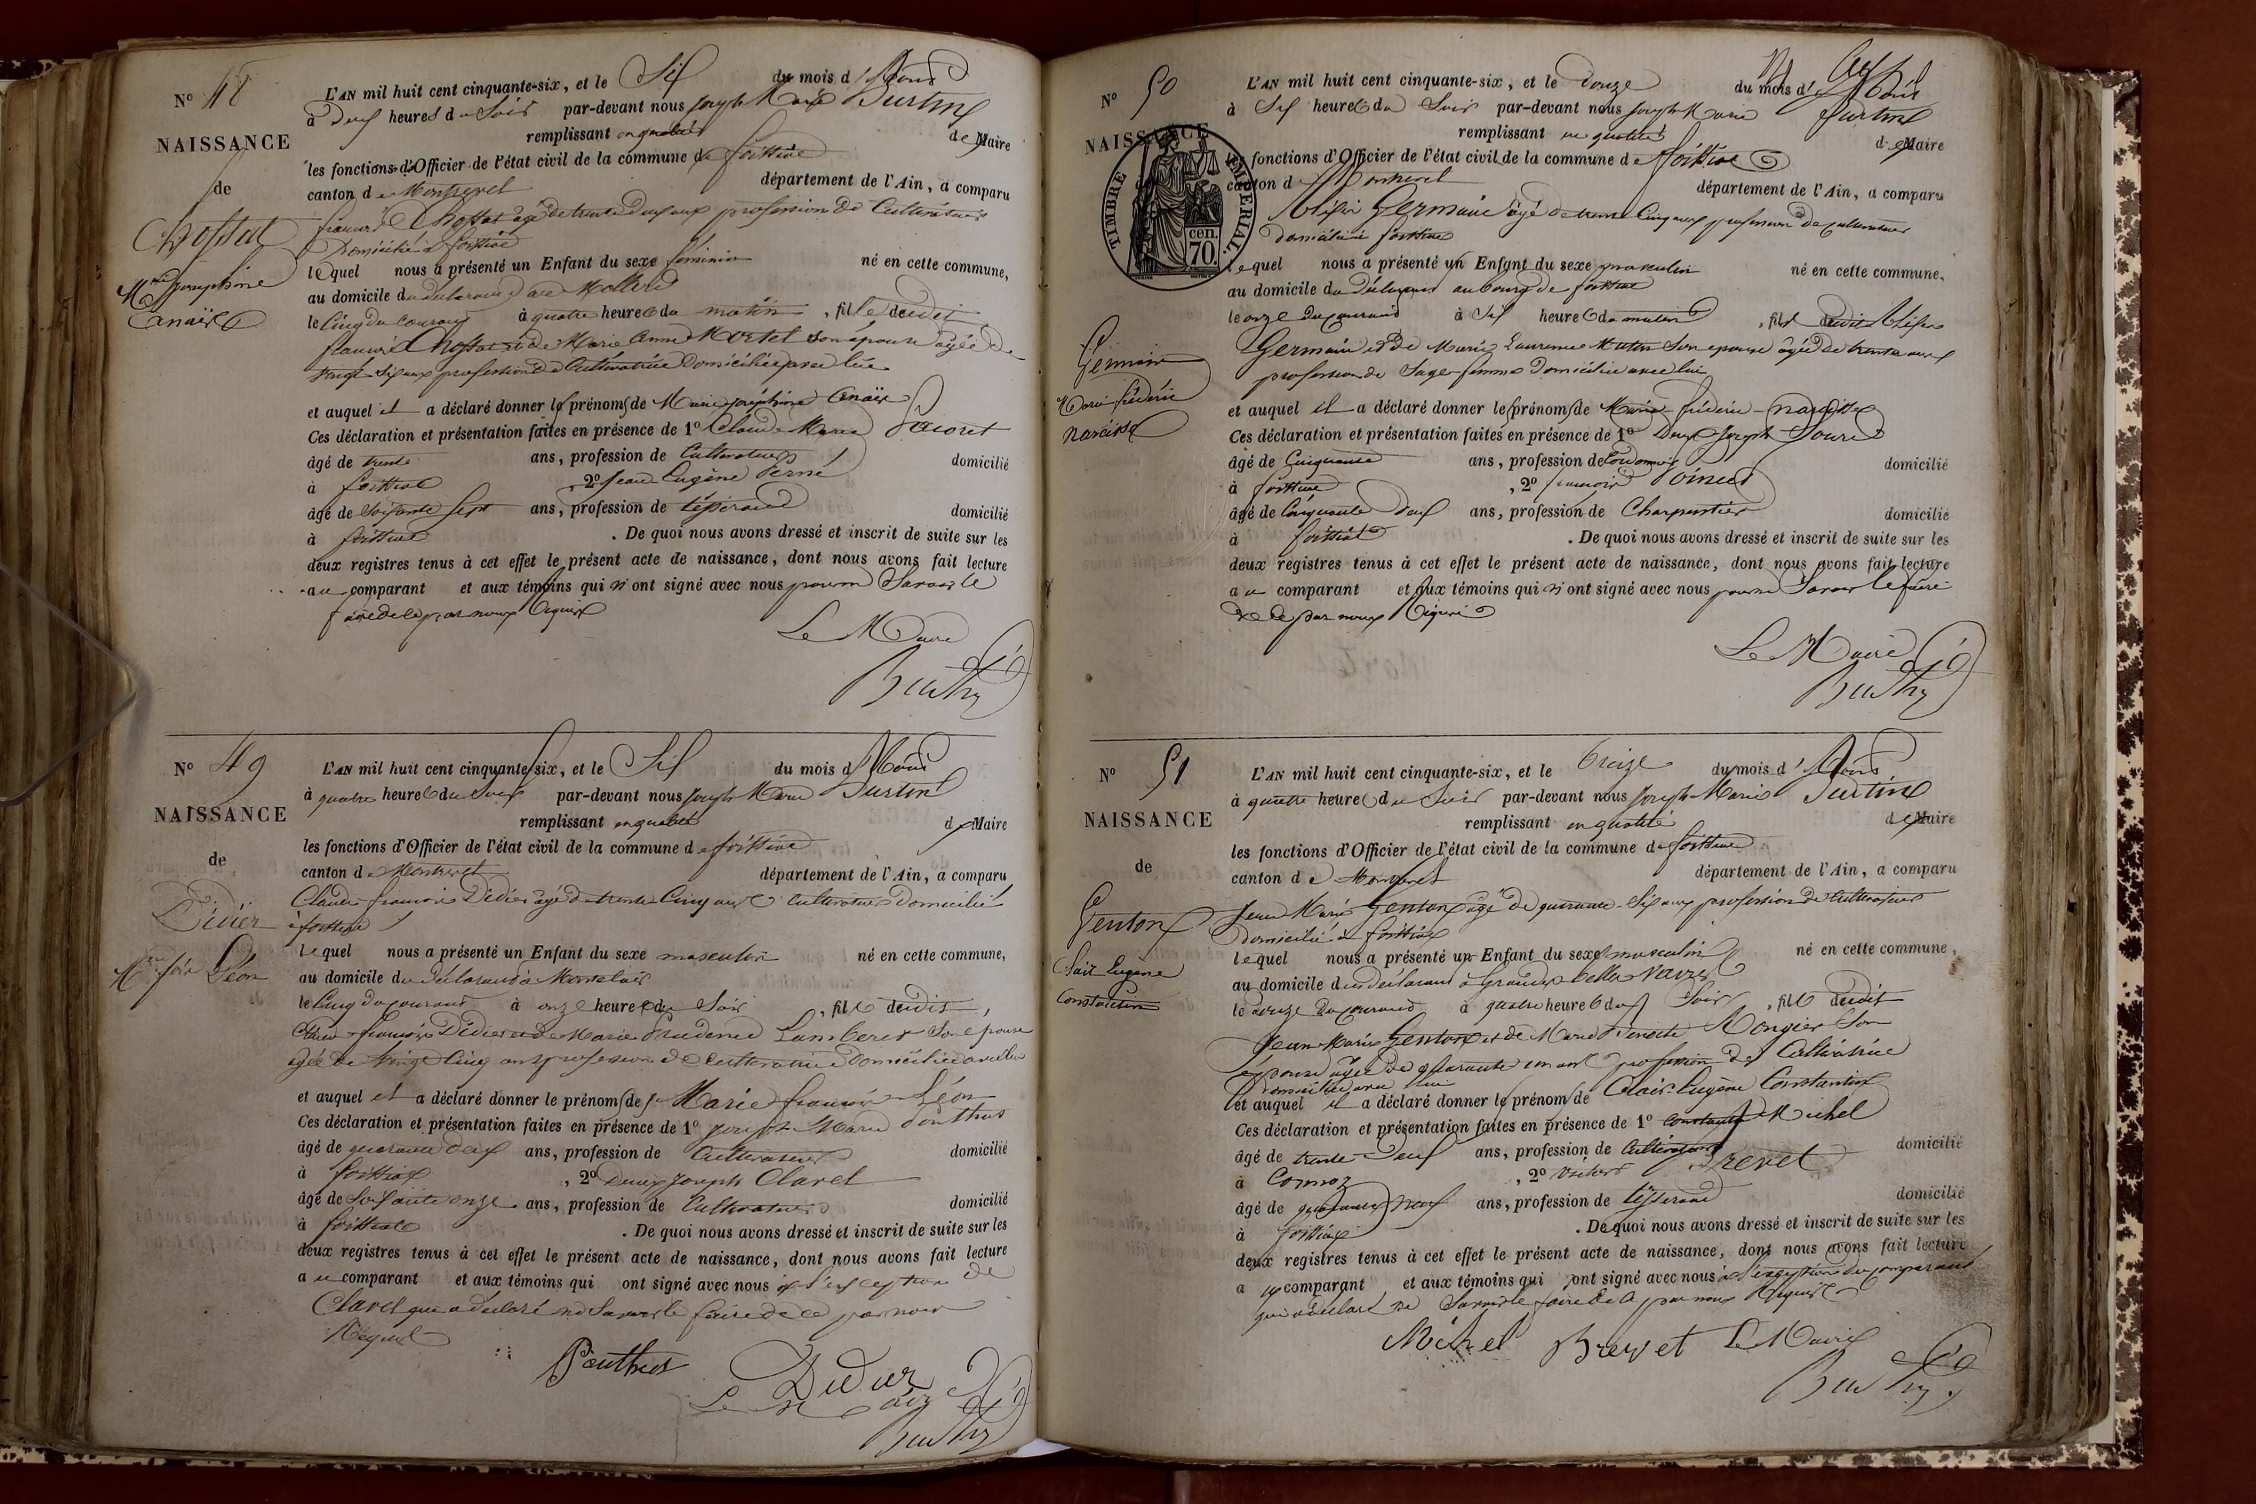 N° 48
NAISSANCE
de
Chossat
M.ie Josephine
Anaïs
L'AN mil huit cent cinquante-six, et le Six du mois d'Aout
à deux heures du Soir par-devant nous Joseph Marie Burtin
remplissant en qualité de Maire
les fonctions d'Officier de l'état civil de la commune de foissiat
canton de Montrevel département de l'Ain, a comparu
françois Chossat âgé de trente deux ans profession de Cultivateur
Domicilié à foissiat
lequel nous a présenté un Enfant du sexe féminin né en cette commune,
au domicile du déclarant
le Cinq du Courant à quatre heures du matin, fille dudit
françois Chossat et de Marie Anne Mortel son épouse âgée de
vingt six ans profession de Cultivatrice Domiciliée avec lui
et auquel il a déclaré donner les prénoms de Marie Josephine Anaïs
Ces déclaration et présentation faites en présence de 1° Claude Marie
âgé de trente ans, profession de Cultivateur domicilié
à foissiat, 2° Jean Eugène
âgé de Soixante Sept ans, profession de tisserand domicilié
à foissiat. De quoi nous avons dressé et inscrit de suite sur les
deux registres tenus à cet effet le présent acte de naissance, dont nous avons fait lecture
au comparant et aux témoins qui n'ont signé avec nous pour ne Savoir le
faire de ce par nous Requis
Le Maire
Burtin
N° 49
NAISSANCE
de
Didier
M.ie f.ois Léon
L'AN mil huit cent cinquante-six, et le Six du mois d'Aout
à quatre heures du Soir par-devant nous Joseph Marie Burtin
remplissant en qualité de Maire
les fonctions d'Officier de l'état civil de la commune de foissiat
canton de Montrevel département de l'Ain, a comparu
Claude françois Didier âgé de trente Cinq ans Cultivateur Domicilié
à foissiat
lequel nous a présenté un Enfant du sexe masculin né en cette commune,
au domicile du déclarant à
le Cinq du courant à onze heures du Soir, fils dudit
Claude françois Didier et de Marie Prudence Lambert Son épouse
âgée de vingt Cinq ans profession de Cultivatrice Domiciliée avec lui
et auquel il a déclaré donner le prénoms de Marie françois Léon
Ces déclaration et présentation faites en présence de 1° Joseph Marie Ponthus
âgé de quarante deux ans, profession de Cultivateur domicilié
à foissiat, 2° Denis Joseph Claret
âgé de Soixante onze ans, profession de Cultivateur domicilié
à foissiat. De quoi nous avons dressé et inscrit de suite sur les
deux registres tenus à cet effet le présent acte de naissance, dont nous avons fait lecture
au comparant et aux témoins qui ont signé avec nous à l'exception de
Claret qui a déclaré ne Savoir le faire de ce par nous
Requis
Ponthus Didier
Le Maire
Burtin
N° 50
NAISSANCE
TIMBRE IMPERIAL
70 cen.
Germain
Marie fréderic
Narcisse
L'AN mil huit cent cinquante-six, et le douze du mois d'Aout
à Six heures du Soir par-devant nous Joseph Marie Burtin
remplissant en qualité de Maire
les fonctions d'Officier de l'état civil de la commune de foissiat
canton de Montrevel département de l'Ain, a comparu
Germain âgé de trente Cinq ans profession de Cultivateur
domicilié à foissiat
lequel nous a présenté un Enfant du sexe masculin né en cette commune,
au domicile du Déclarant au bourg de foissiat
le onze du courant à Six heures du matin, fils dudit
Germain et de Marie Laurence Mutin Son épouse âgée de trente ans
profession de Sage-femme Domiciliée avec lui
et auquel il a déclaré donner les prénoms de Marie fréderic Narcisse
Ces déclaration et présentation faites en présence de 1° Denis Joseph
âgé de Cinquante ans, profession de Cordonnier domicilié
à foissiat, 2° françois
âgé de Cinquante Deux ans, profession de Charpentier domicilié
à foissiat. De quoi nous avons dressé et inscrit de suite sur les
deux registres tenus à cet effet le présent acte de naissance, dont nous avons fait lecture
au comparant et aux témoins qui n'ont signé avec nous pour ne Savoir le faire
de ce par nous Requis
Le Maire
Burtin
N° 51
NAISSANCE
de
Genton
Clair Eugène
Constantin
L'AN mil huit cent cinquante-six, et le treize du mois d'Aout
à quatre heures du Soir par-devant nous Joseph Marie Burtin
remplissant en qualité de Maire
les fonctions d'Officier de l'état civil de la commune de foissiat
canton de Montrevel département de l'Ain, a comparu
Jean Marie Genton âgé de quarante Six ans profession de Cultivateur
Domicilié à foissiat
lequel nous a présenté un Enfant du sexe masculin né en cette commune,
au domicile du déclarant à
le Douze du Courant à quatre heures du Soir, fils dudit
Jean Marie Genton et de Marie Benoite Mongier Son
épouse âgée de quarante un ans profession de Cultivatrice
Domiciliée avec lui
et auquel il a déclaré donner les prénoms de Clair Eugène Constantin
Ces déclaration et présentation faites en présence de 1° Constantin Michel
âgé de trente neuf ans, profession de Cultivateur domicilié
à Cormoz, 2° Brevet
âgé de quarante neuf ans, profession de tisserand domicilié
à foissiat. De quoi nous avons dressé et inscrit de suite sur les
deux registres tenus à cet effet le présent acte de naissance, dont nous avons fait lecture
au comparant et aux témoins qui ont signé avec nous à l'exception du comparant
qui a déclaré ne Savoir le faire de ce par nous Requis
Michel Brevet Le Maire
Burtin